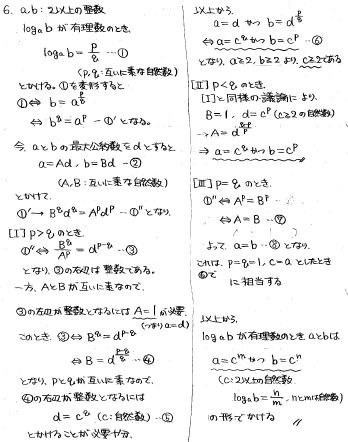 6. a,b: 2以上の整数
log_a b が有理数のとき、
log_a b = p/q …①
(p,q: 互いに素な自然数)
とかける。①を変形すると
①⇔ b = a^{p/q}
⇔ b^q = a^p …①' となる。
今、aとbの最大公約数をdとすると
a = Ad, b = Bd …②
(A,B: 互いに素な自然数)
とかけて、
①'→ B^q d^q = A^p d^p …①'' となり、
[I] p>q のとき
①''⇔ B^q/A^p = d^{p-q} …③
となり、③の右辺は整数である。
一方、AとBが互いに素なので、
③の左辺が整数となるには A=1 が必要
(つまり a=d)
このとき、③⇔ B^q = d^{p-q}
⇔ B = d^{(p-q)/q} …④
となり、pとqが互いに素なので、
④の右辺が整数となるには
d = c^q (c: 自然数) …⑤
とかけることが必要十分。
以上から、
a = d かつ b = d^{p/q}
⇔ a = c^q かつ b = c^p …⑥
となり、a≧2, b≧2 より、c≧2である
[II] p<q のとき
[I]と同様の議論により、
B=1, d=c^p (c≧2の自然数)
→ A = d^{(q-p)/p}
⇒ a = c^q かつ b = c^p
[III] p=q のとき
①''⇔ A^p = B^p
⇔ A = B …⑦
よって、a=b …⑧ となる。
これは、p=q=1, c=a としたとき
⑥で
に相当する
以上から、
log_a b が有理数のとき aとbは
a = c^m かつ b = c^n
(c: 2以上の自然数
log_a b = n/m, nとmは自然数)
の形でかける 〃